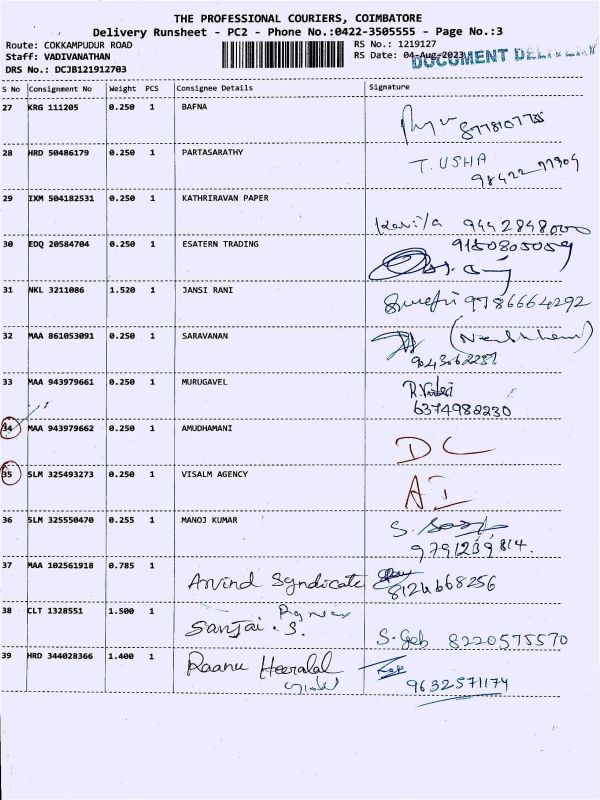 THE PROFESSIONAL COURIERS, COIMBATORE
Delivery Runsheet - PC2 - Phone No.:0422-3505555 - Page No.:3
Route: COKKAMPUDUR ROAD RS No.: 1219127
Staff: VADIVANATHAN RS Date: 04-Aug-2023 DOCUMENT DELIVERY
DRS No.: DCJB121912703
S No Consignment No Weight PCS Consignee Details Signature
27 KRG 111205 0.250 1 BAFNA
28 HRD 50486179 0.250 1 PARTASARATHY T. USHA
29 IXM 504182531 0.250 1 KATHRIRAVAN PAPER
9442848000
30 EDQ 20584704 0.250 1 ESATERN TRADING 9150805059
31 NKL 3211086 1.520 1 JANSI RANI
9786664292
32 MAA 861053091 0.250 1 SARAVANAN
33 MAA 943979661 0.250 1 MURUGAVEL
6374982230
34 MAA 943979662 0.250 1 AMUDHAMANI DC
35 SLM 325493273 0.250 1 VISALM AGENCY AI
36 SLM 325550470 0.255 1 MANOJ KUMAR S.
9791239814.
37 MAA 102561918 0.785 1 Arvind Syndicate 8124668256
38 CLT 1328551 1.500 1 Sanjai. S. 8220575570
39 HRD 344028366 1.400 1 Raanu Heeralal
9632571174